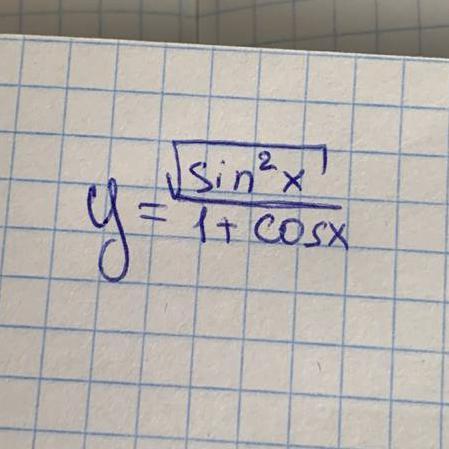 y = √(sin²x) / (1 + cosx)